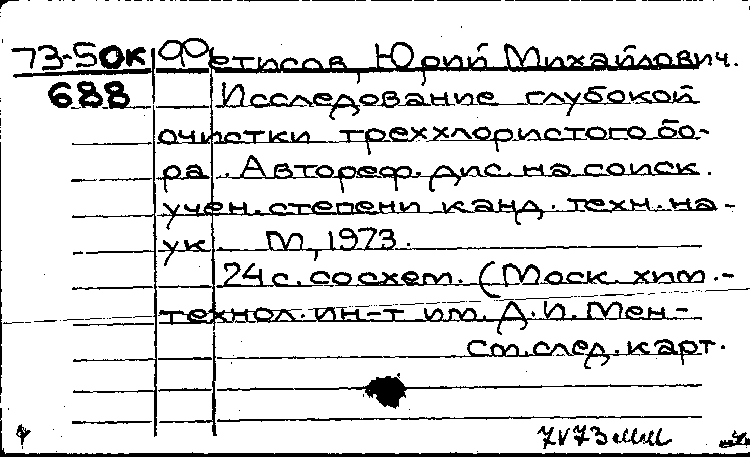 73-50К Фетисов, Юрий Михайлович.
688 Исследование глубокой
очистки треххлористого бо-
ра. Автореф. дис. на соиск.
учен. степени канд. техн. на-
ук М, 1973.
24 с. со схем. (Моск. хим.-
технол. ин-т им. Д. И. Мен-
см. след. карт.